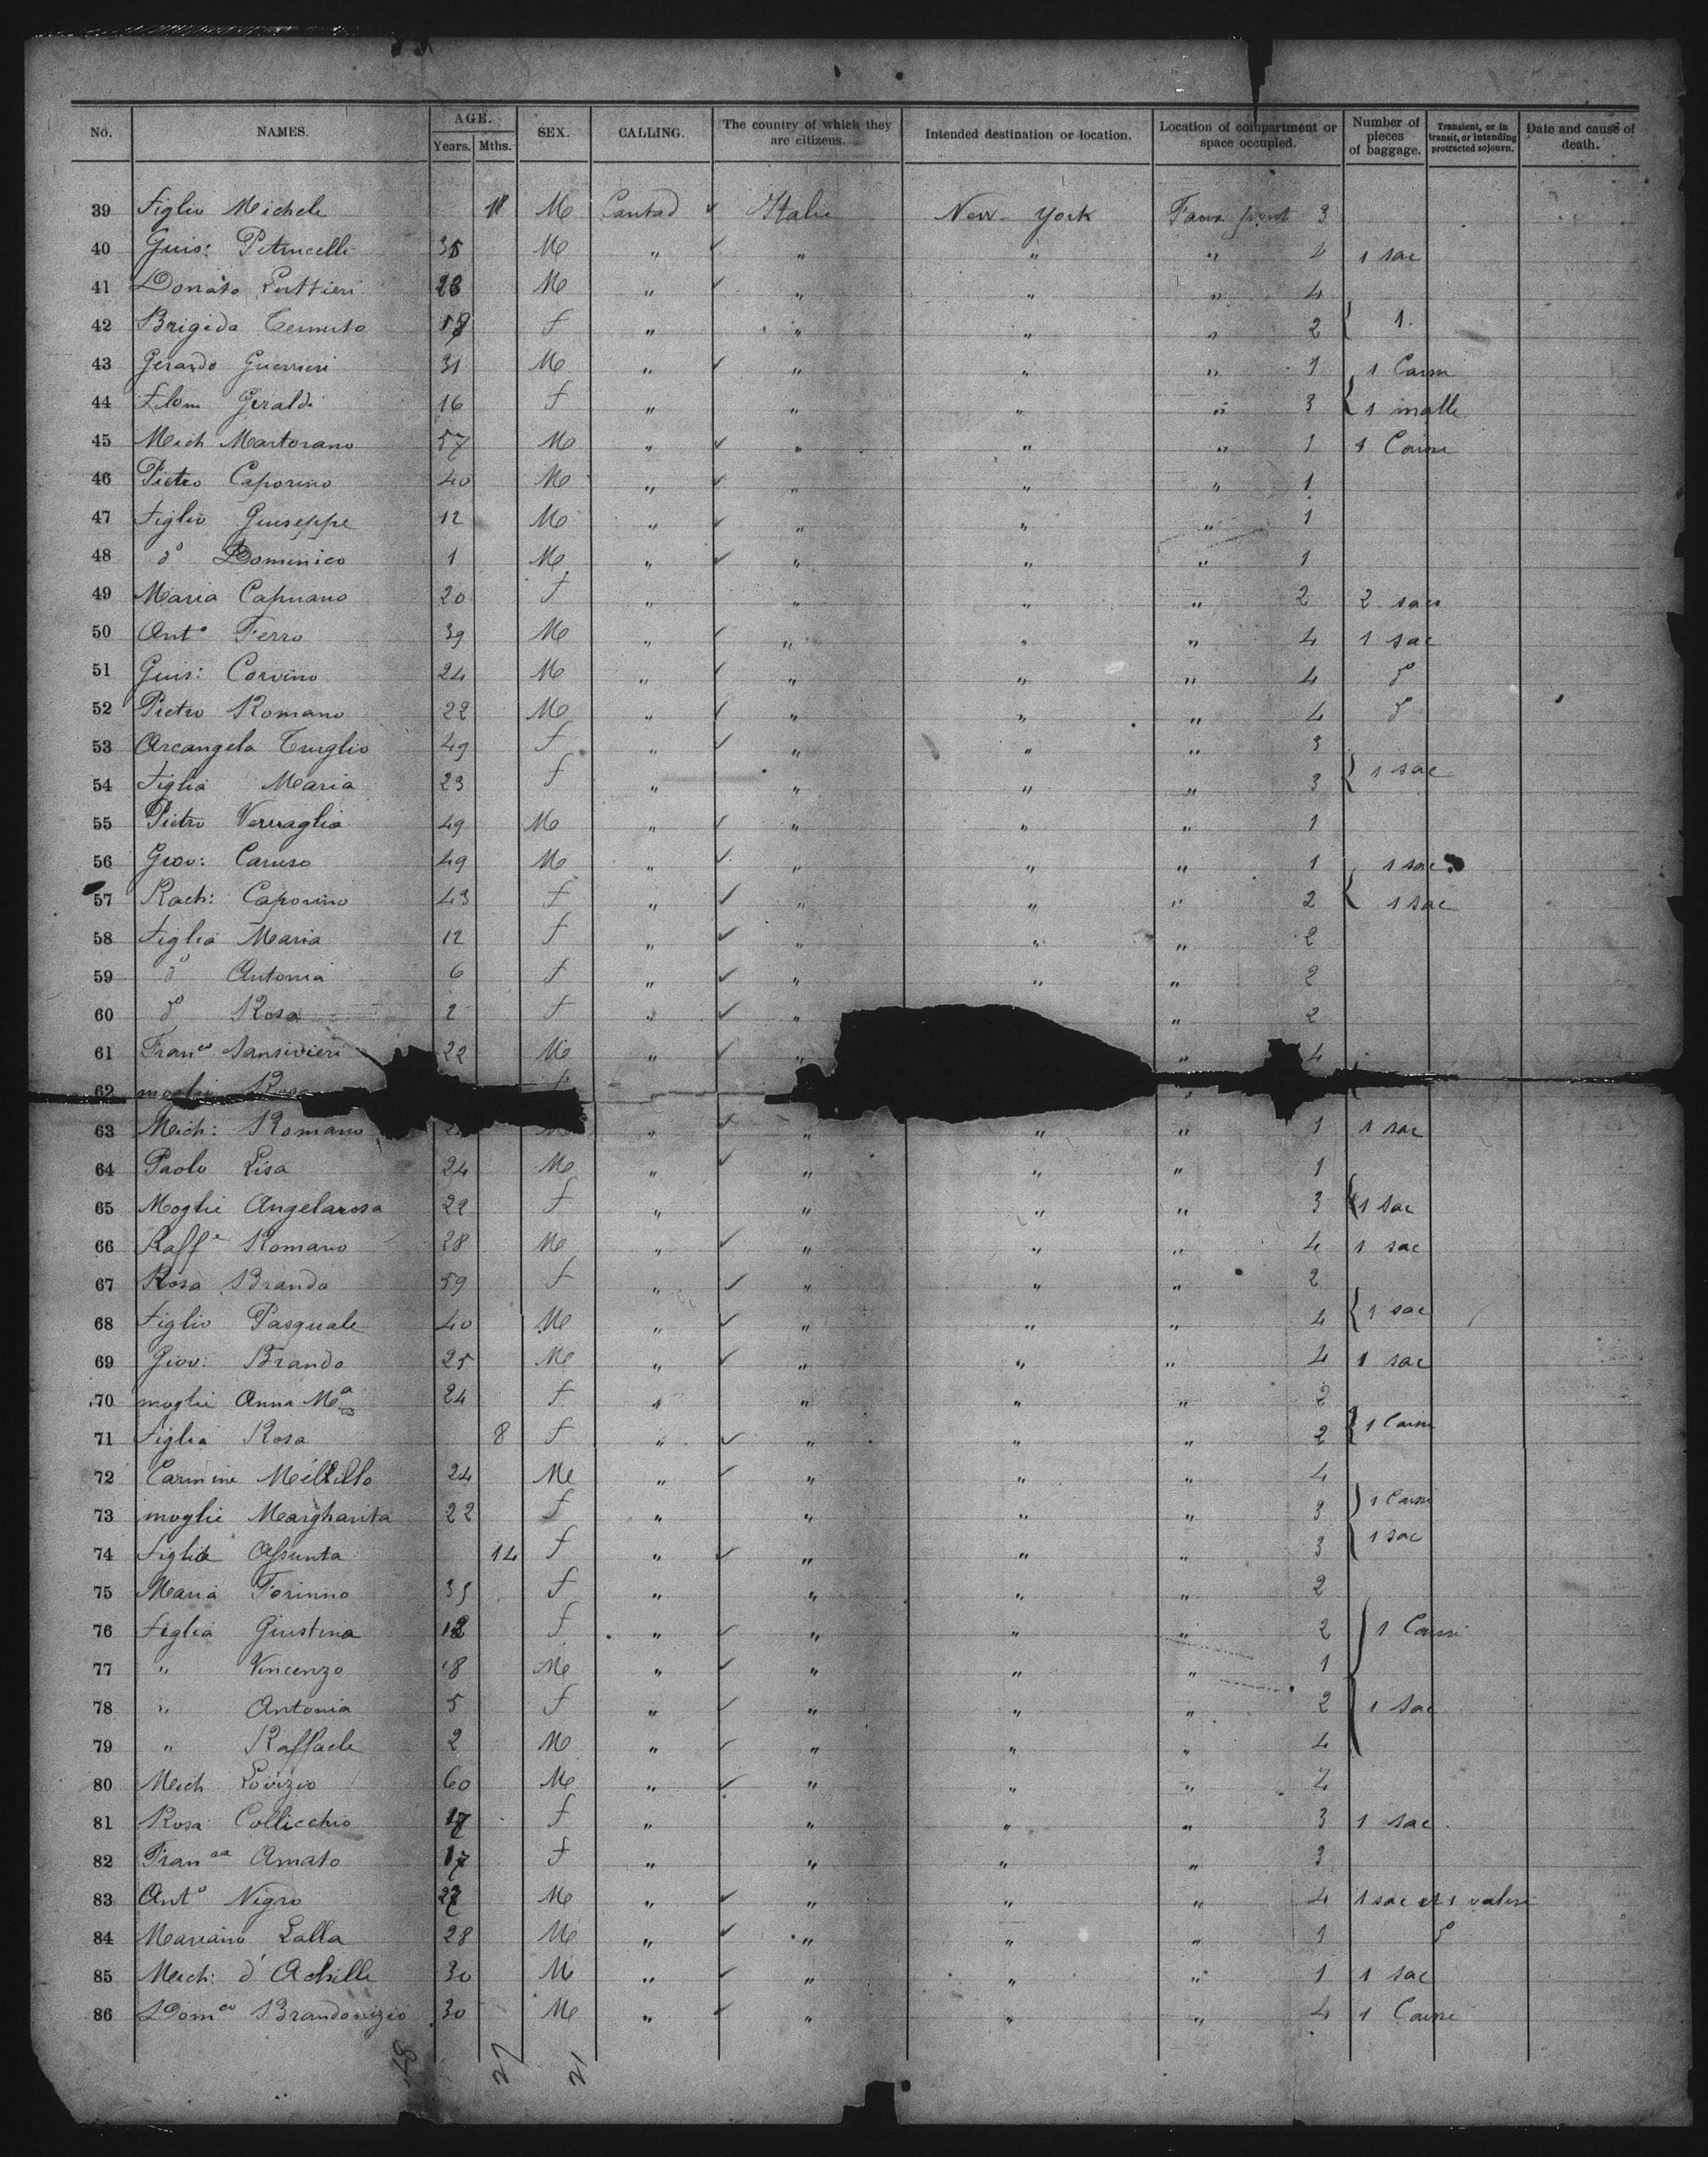 No. NAMES. AGE. Years. Mths. SEX. CALLING. The country of which they are citizens. Intended destination or location. Location of compartment or space occupied. Number of pieces of baggage. Transient, or in transit, or intending protracted sojourn. Date and cause of death.
39 Figlio Michele M Italie New-York Faux pont 3
40 Guis: Petrucelli M „ „ „ „ 4 1 sac
41 Donato M „ „ „ „ 4
42 Brigida f „ „ „ „ 2 1.
43 Gerardo Guerrieri 31 M „ „ „ „ 1 1 Caisse
44 Filom Giraldi 16 f „ „ „ „ 3 1 malle
45 Mich Martorano 57 M „ „ „ „ 1 1 Caisse
46 Pietro Caporino 40 M „ „ „ „ 1
47 Figlio Giuseppe 12 M „ „ „ „ 1
48 do Domenico 1 M „ „ „ „ 1
49 Maria Capuano 20 f „ „ „ „ 2 2 sacs
50 Anto Ferro 39 M „ „ „ „ 4 1 sac
51 Guis: Corvino 24 M „ „ „ „ 4 do
52 Pietro Romano 22 M „ „ „ „ 4 do
53 Arcangela 49 f „ „ „ „ 3
54 Figlia Maria 23 f „ „ „ „ 3 1 sac
55 Pietro 49 M „ „ „ „ 1
56 Giov: Caruso 49 M „ „ „ „ 1 1 sac
57 Rach: Caporino 43 f „ „ „ „ 2 1 sac
58 Figlia Maria 12 f „ „ „ „ 2
59 do Antonia 6 f „ „ „ „ 2
60 do Rosa 2 f „ „ „ 2
61 Franco Sansivieri 22 M „ „ „ 4
62 moglie Rosa „
63 Mich: Romano M „ „ „ „ 1 1 sac
64 Paolo Lisa 24 M „ „ „ „ 1
65 Moglie Angelarosa 22 f „ „ „ „ 3 1 sac
66 Raffe Romano 28 M „ „ „ „ 4 1 sac
67 Rosa Brando 59 f „ „ „ „ 2
68 Figlio Pasquale 40 M „ „ „ „ 4 1 sac
69 Giov: Brando 25 M „ „ „ „ 4 1 sac
70 moglie Anna Ma 24 f „ „ „ „ 2
71 Figlia Rosa 8 f „ „ „ „ 2 1 Caisse
72 Carmine 24 M „ „ „ „ 4
73 moglie Margharita 22 f „ „ „ „ 3 1 Caisse
74 Figlia Assunta 14 f „ „ „ „ 3 1 sac
75 Maria Forinno 35 f „ „ „ „ 2
76 Figlia Giustina 12 f „ „ „ „ 2 1 Caisse
77 „ Vincenzo 8 M „ „ „ „ 1
78 „ Antonia 5 f „ „ „ „ 2 1 sac
79 „ Raffaele 2 M „ „ „ „ 4
80 Mich Lovizio 60 M „ „ „ „
81 Rosa Collicchio 17 f „ „ „ „ 3 1 sac
82 Franca Amato 17 f „ „ „ „ 3
83 Anto Nigro 27 M „ „ „ „ 4 1 sac et 1 valise
84 Mariano Lalla 28 M „ „ „ „ 1 do
85 Mich: d'Achille 30 M „ „ „ „ 1 1 sac
86 Domco Brandonizio 30 M „ „ „ „ 4 1 Caisse
48 27 21